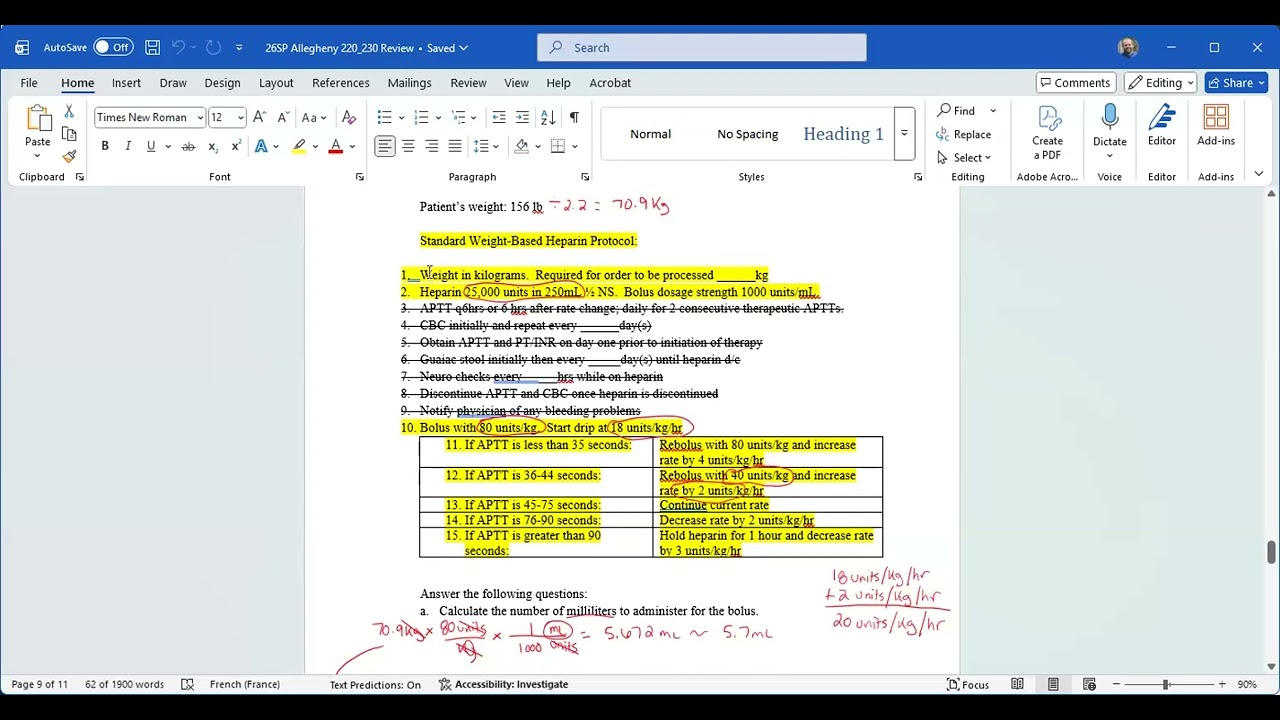 AutoSave Off 26SP Allegheny 220_230 Review • Saved Search
File Home Insert Draw Design Layout References Mailings Review View Help Acrobat Comments Editing Share
Paste Times New Roman 12 Normal No Spacing Heading 1 Find Replace Select Create a PDF Dictate Editor Add-ins
Clipboard Font Paragraph Styles Editing Adobe Acro... Voice Editor Add-ins
Patient's weight: 156 lb ÷2.2 = 70.9 Kg
Standard Weight-Based Heparin Protocol:
1. Weight in kilograms. Required for order to be processed ______kg
2. Heparin 25,000 units in 250mL ½ NS. Bolus dosage strength 1000 units/mL.
3. APTT q6hrs or 6 hrs after rate change; daily for 2 consecutive therapeutic APTTs.
4. CBC initially and repeat every ______day(s)
5. Obtain APTT and PT/INR on day one prior to initiation of therapy
6. Guaiac stool initially then every _____day(s) until heparin d/c
7. Neuro checks every_____hrs while on heparin
8. Discontinue APTT and CBC once heparin is discontinued
9. Notify physician of any bleeding problems
10. Bolus with 80 units/kg. Start drip at 18 units/kg/hr
11. If APTT is less than 35 seconds: Rebolus with 80 units/kg and increase
rate by 4 units/kg/hr
12. If APTT is 36-44 seconds: Rebolus with 40 units/kg and increase
rate by 2 units/kg/hr
13. If APTT is 45-75 seconds: Continue current rate
14. If APTT is 76-90 seconds: Decrease rate by 2 units/kg/hr
15. If APTT is greater than 90 Hold heparin for 1 hour and decrease rate
seconds: by 3 units/kg/hr
18 units/Kg/hr
+2 units/Kg/hr
20 units/Kg/hr
Answer the following questions:
a. Calculate the number of milliliters to administer for the bolus.
70.9 Kg × 80 units/Kg × 1 mL/1000 units = 5.672 mL ~ 5.7 mL
Page 9 of 11 62 of 1900 words French (France) Text Predictions: On Accessibility: Investigate Focus 90%